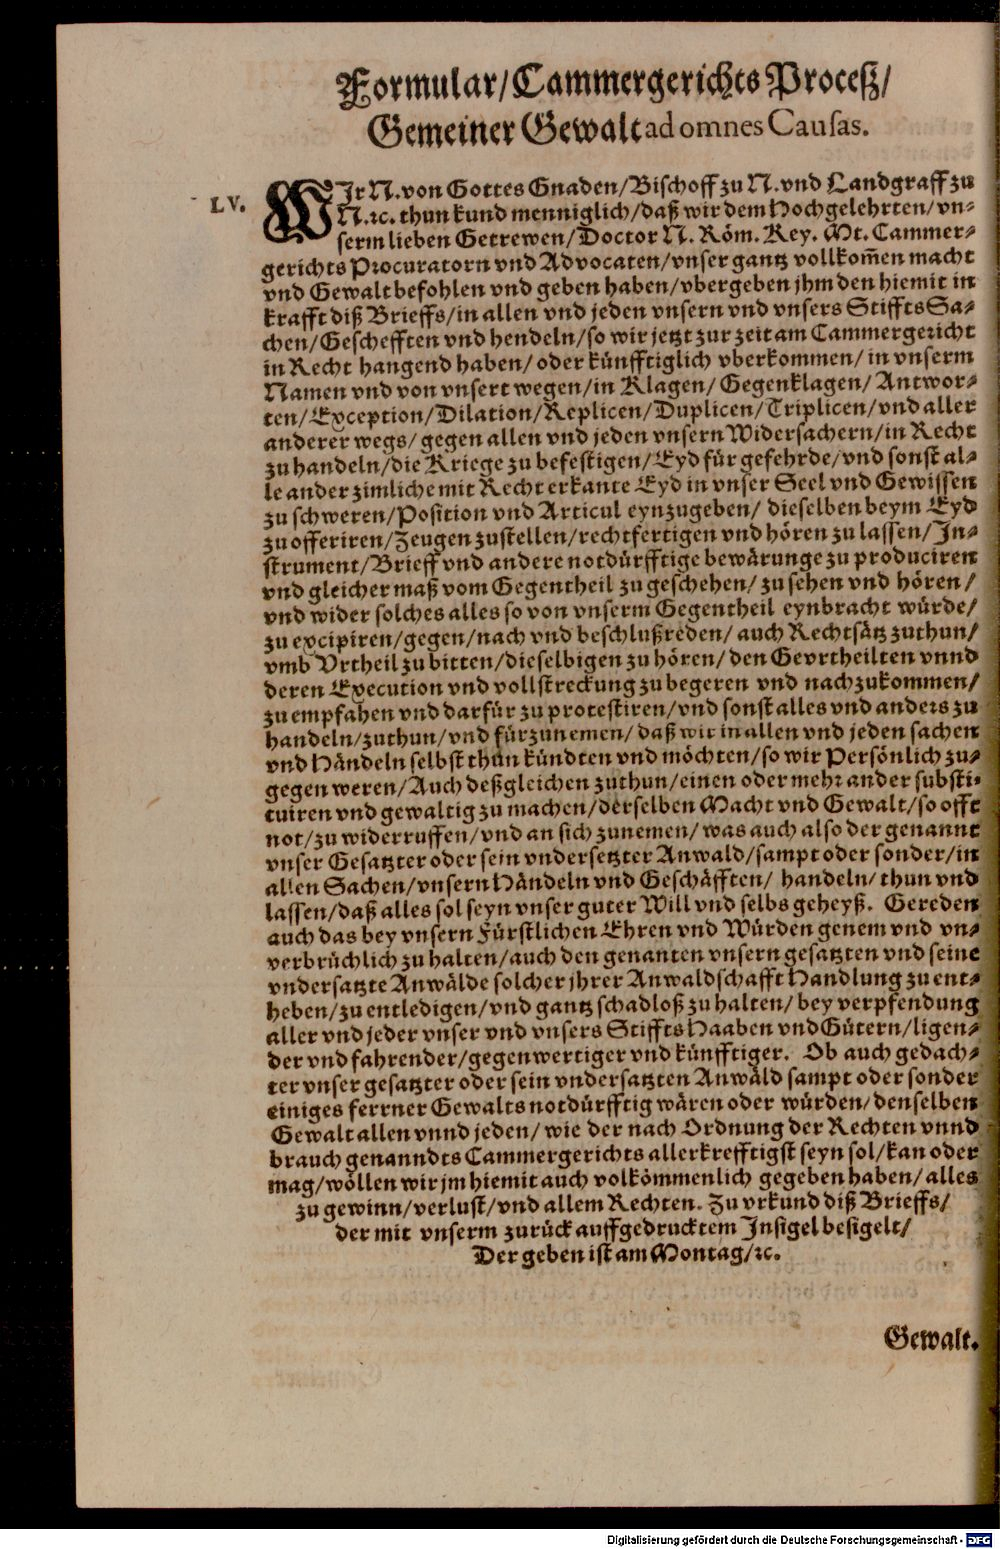 Formular/Cammergerichts Proceß/
Gemeiner Gewalt ad omnes Causas.
LV.
WJr N. von Gottes Gnaden/Bischoff zu N. vnd Landgraff zu
N. ꝛc. thun kund menniglich/daß wir dem Hochgelehrten/vn-
serm lieben Getrewen/Doctor N. Röm. Key. Mt. Cammer-
gerichts Procuratorn vnd Advocaten/vnser gantz vollkom̃en macht
vnd Gewalt befohlen vnd geben haben/vbergeben jhm den hiemit in
krafft diß Brieffs/in allen vnd jeden vnsern vnd vnsers Stiffts Sa-
chen/Geschefften vnd hendeln/so wir jetzt zur zeit am Cammergericht
in Recht hangend haben/oder künfftiglich vberkommen/in vnserm
Namen vnd von vnsert wegen/in Klagen/Gegenklagen/Antwor-
ten/Exception/Dilation/Replicen/Duplicen/Triplicen/vnd aller
anderer wegs/gegen allen vnd jeden vnsern Widersachern/in Recht
zu handeln/die Kriege zu befestigen/Eyd für gefehrde/vnd sonst al-
le ander zimliche mit Recht erkante Eyd in vnser Seel vnd Gewissen
zu schweren/Position vnd Articul eynzugeben/dieselben beym Eyd
zu offeriren/Zeugen zustellen/rechtfertigen vnd hören zu lassen/Jn-
strument/Brieff vnd andere notdürfftige bewärunge zu produciren
vnd gleicher maß vom Gegentheil zu geschehen/zu sehen vnd hören/
vnd wider solches alles so von vnserm Gegentheil eynbracht würde/
zu excipiren/gegen/nach vnd beschlußreden/auch Rechtsätz zuthun/
vmb Vrtheil zu bitten/dieselbigen zu hören/den Gevrtheilten vnnd
deren Execution vnd vollstreckung zu begeren vnd nachzukommen/
zu empfahen vnd darfür zu protestiren/vnd sonst alles vnd anders zu
handeln/zuthun/vnd fürzunemen/daß wir in allen vnd jeden sachen
vnd Händeln selbst thun kündten vnd möchten/so wir Persönlich zu-
gegen weren/Auch deßgleichen zuthun/einen oder mehr ander substi-
tuiren vnd gewaltig zu machen/derselben Macht vnd Gewalt/so offt
not/zu widerruffen/vnd an sich zunemen/was auch also der genannt
vnser Gesatzter oder sein vndersetzter Anwald/sampt oder sonder/in
allen Sachen/vnsern Händeln vnd Geschäfften/handeln/thun vnd
lassen/daß alles sol seyn vnser guter Will vnd selbs geheyß. Gereden
auch das bey vnsern Fürstlichen Ehren vnd Würden genem vnd vn-
verbrüchlich zu halten/auch den genanten vnsern gesatzten vnd seine
vndersatzte Anwälde solcher jhrer Anwaldschafft Handlung zu ent-
heben/zu entledigen/vnd gantz schadloß zu halten/bey verpfendung
aller vnd jeder vnser vnd vnsers Stiffts Haaben vnd Gütern/ligen-
der vnd fahrender/gegenwertiger vnd künfftiger. Ob auch gedach-
ter vnser gesatzter oder sein vndersatzten Anwäld sampt oder sonder
einiges ferrner Gewalts notdürfftig wären oder würden/denselben
Gewalt allen vnnd jeden/wie der nach Ordnung der Rechten vnnd
brauch genanndts Cammergerichts allerkrefftigst seyn sol/kan oder
mag/wöllen wir jm hiemit auch volkömmenlich gegeben haben/alles
zu gewinn/verlust/vnd allem Rechten. Zu vrkund diß Brieffs/
der mit vnserm zurück auffgedrucktem Insigel besigelt/
Der geben ist am Montag/ꝛc.
Gewalt.
Digitalisierung gefördert durch die Deutsche Forschungsgemeinschaft - DFG